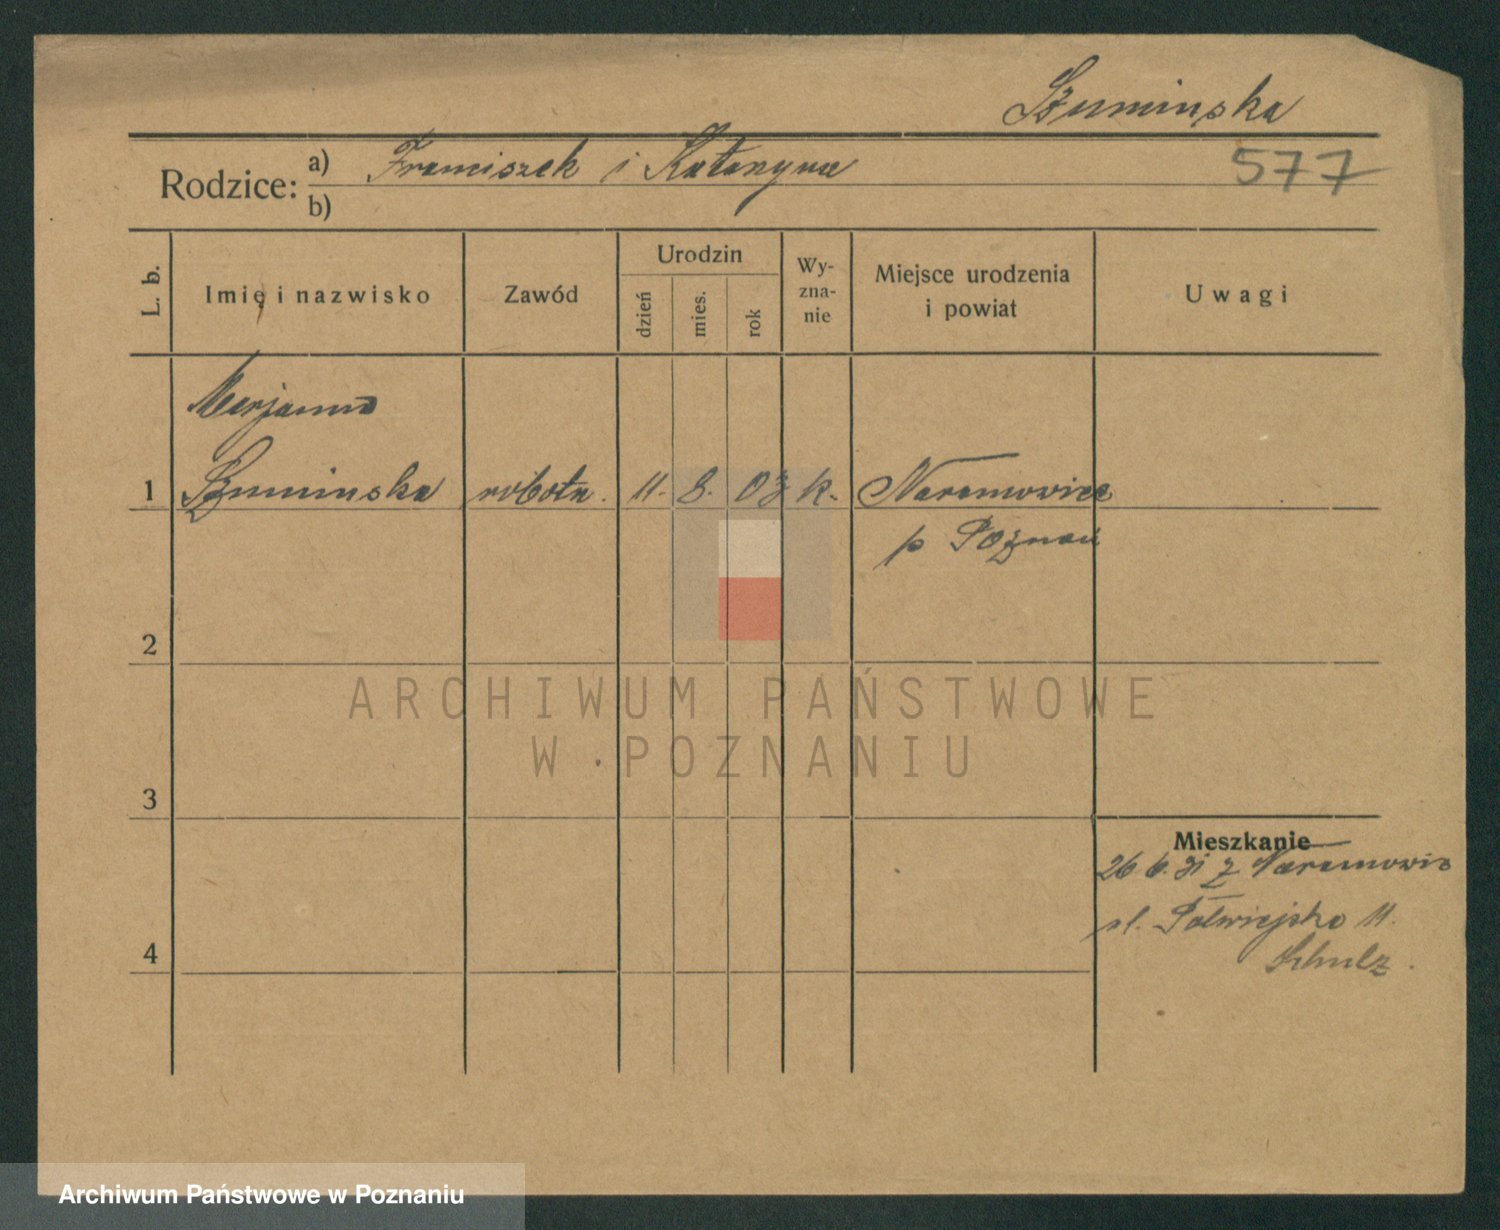 Szuminska
Rodzice: a) Franciszek i Katarzyna
577
b)
L. b.
Imię i nazwisko
Zawód
Urodzin
dzień
mies.
rok
Wy-
zna-
nie
Miejsce urodzenia
i powiat
Uwagi
Marjanna
1 Szuminska robotn. 11. 8. 03 k. Naramowice
p Poznań
2
ARCHIWUM PAŃSTWOWE
W POZNANIU
3
Mieszkanie
26 6. 31 z Naramowic
ul. Półwiejska 11.
4
Schulz.
Archiwum Państwowe w Poznaniu